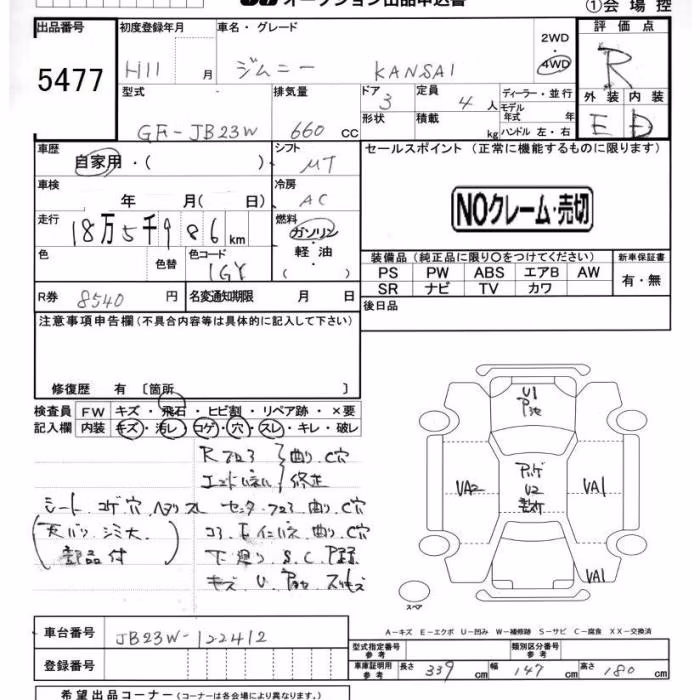 オークション出品申込書
①会場控
出品番号 初度登録年月 車名・グレード 評価点
5477 H11 月 ジムニー KANSAI 2WD 4WD R
型式 排気量 ドア 定員 ディーラー・並行 外装 内装
GF-JB23W 660 cc 3 4 人 モデル年式 年 E D
形状 積載 kg ハンドル 左・右
車歴 シフト セールスポイント (正常に機能するものに限ります)
自家用・( ) MT
車検 冷房
年 月( 日) AC
NOクレーム・売切
走行 燃料
18万5千986 km ガソリン
軽油
( )
色 色替 色コード 1GY
装備品(純正品に限り○をつけてください) 新車保証書
PS PW ABS エアB AW 有・無
SR ナビ TV カワ
R券 8540 円 名変通知期限 月 日
後日品
注意事項申告欄(不具合内容等は具体的に記入して下さい)
修復歴 有 〔箇所 〕
検査員 FW キズ・飛石・ヒビ割・リペア跡・×要
記入欄 内装 キズ・汚レ・コゲ・穴・スレ・キレ・破レ
Rフロア 曲り C穴
修正
シート コゲ穴 ヘタリ スレ センターフロア 曲り C穴
天バリ シミ大 曲り C穴
部品付 下廻り S.C
キズ U
U1
VA2
U2
VA1
VA1
スペア
A-キズ E-エクボ U-凹み W-補修跡 S-サビ C-腐食 XX-交換済
車台番号 JB23W-122412
登録番号
型式指定番号 参考 類別区分番号 参考
車庫証明用 参考 長さ 339 cm 幅 147 cm 高さ 180 cm
希望出品コーナー(コーナーは各会場により異なります。)